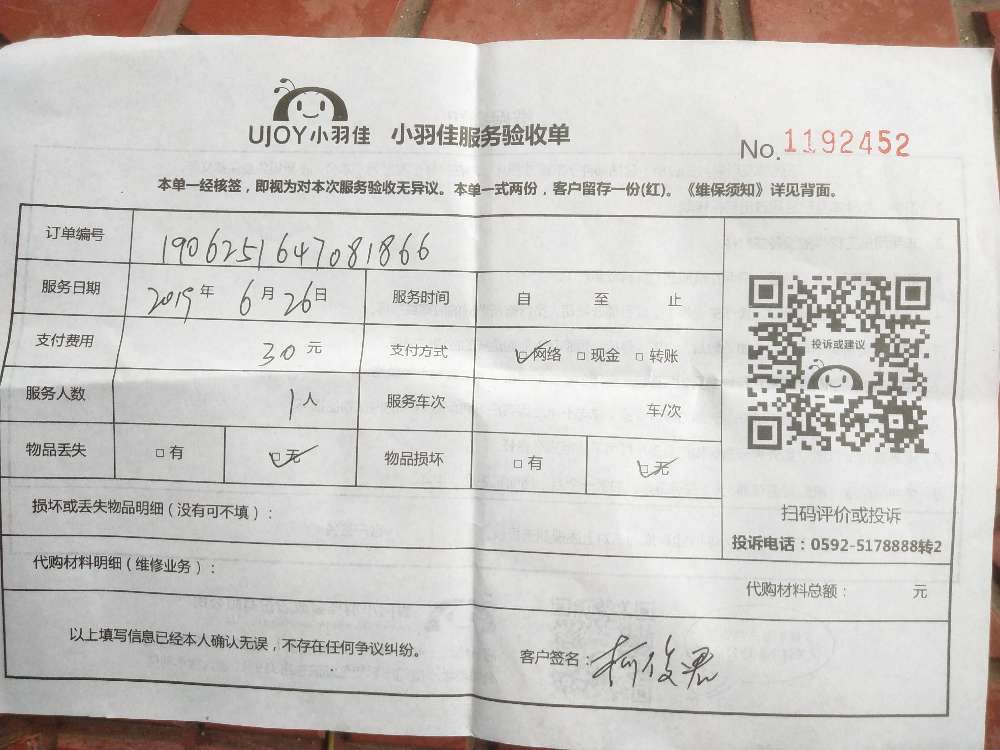 UJOY小羽佳 小羽佳服务验收单
No.1192452
本单一经核签，即视为对本次服务验收无异议。本单一式两份，客户留存一份(红)。《维保须知》详见背面。
订单编号 1906251647081866
服务日期 2019年 6月26日 服务时间 自 至 止
支付费用 30元 支付方式 □网络 □现金 □转账
投诉或建议
服务人数 1人 服务车次 车/次
物品丢失 □有 □无 物品损坏 □有 □无
扫码评价或投诉
投诉电话：0592-5178888转2
损坏或丢失物品明细（没有可不填）：
代购材料明细（维修业务）：
代购材料总额： 元
以上填写信息已经本人确认无误，不存在任何争议纠纷。
客户签名：柯俊君